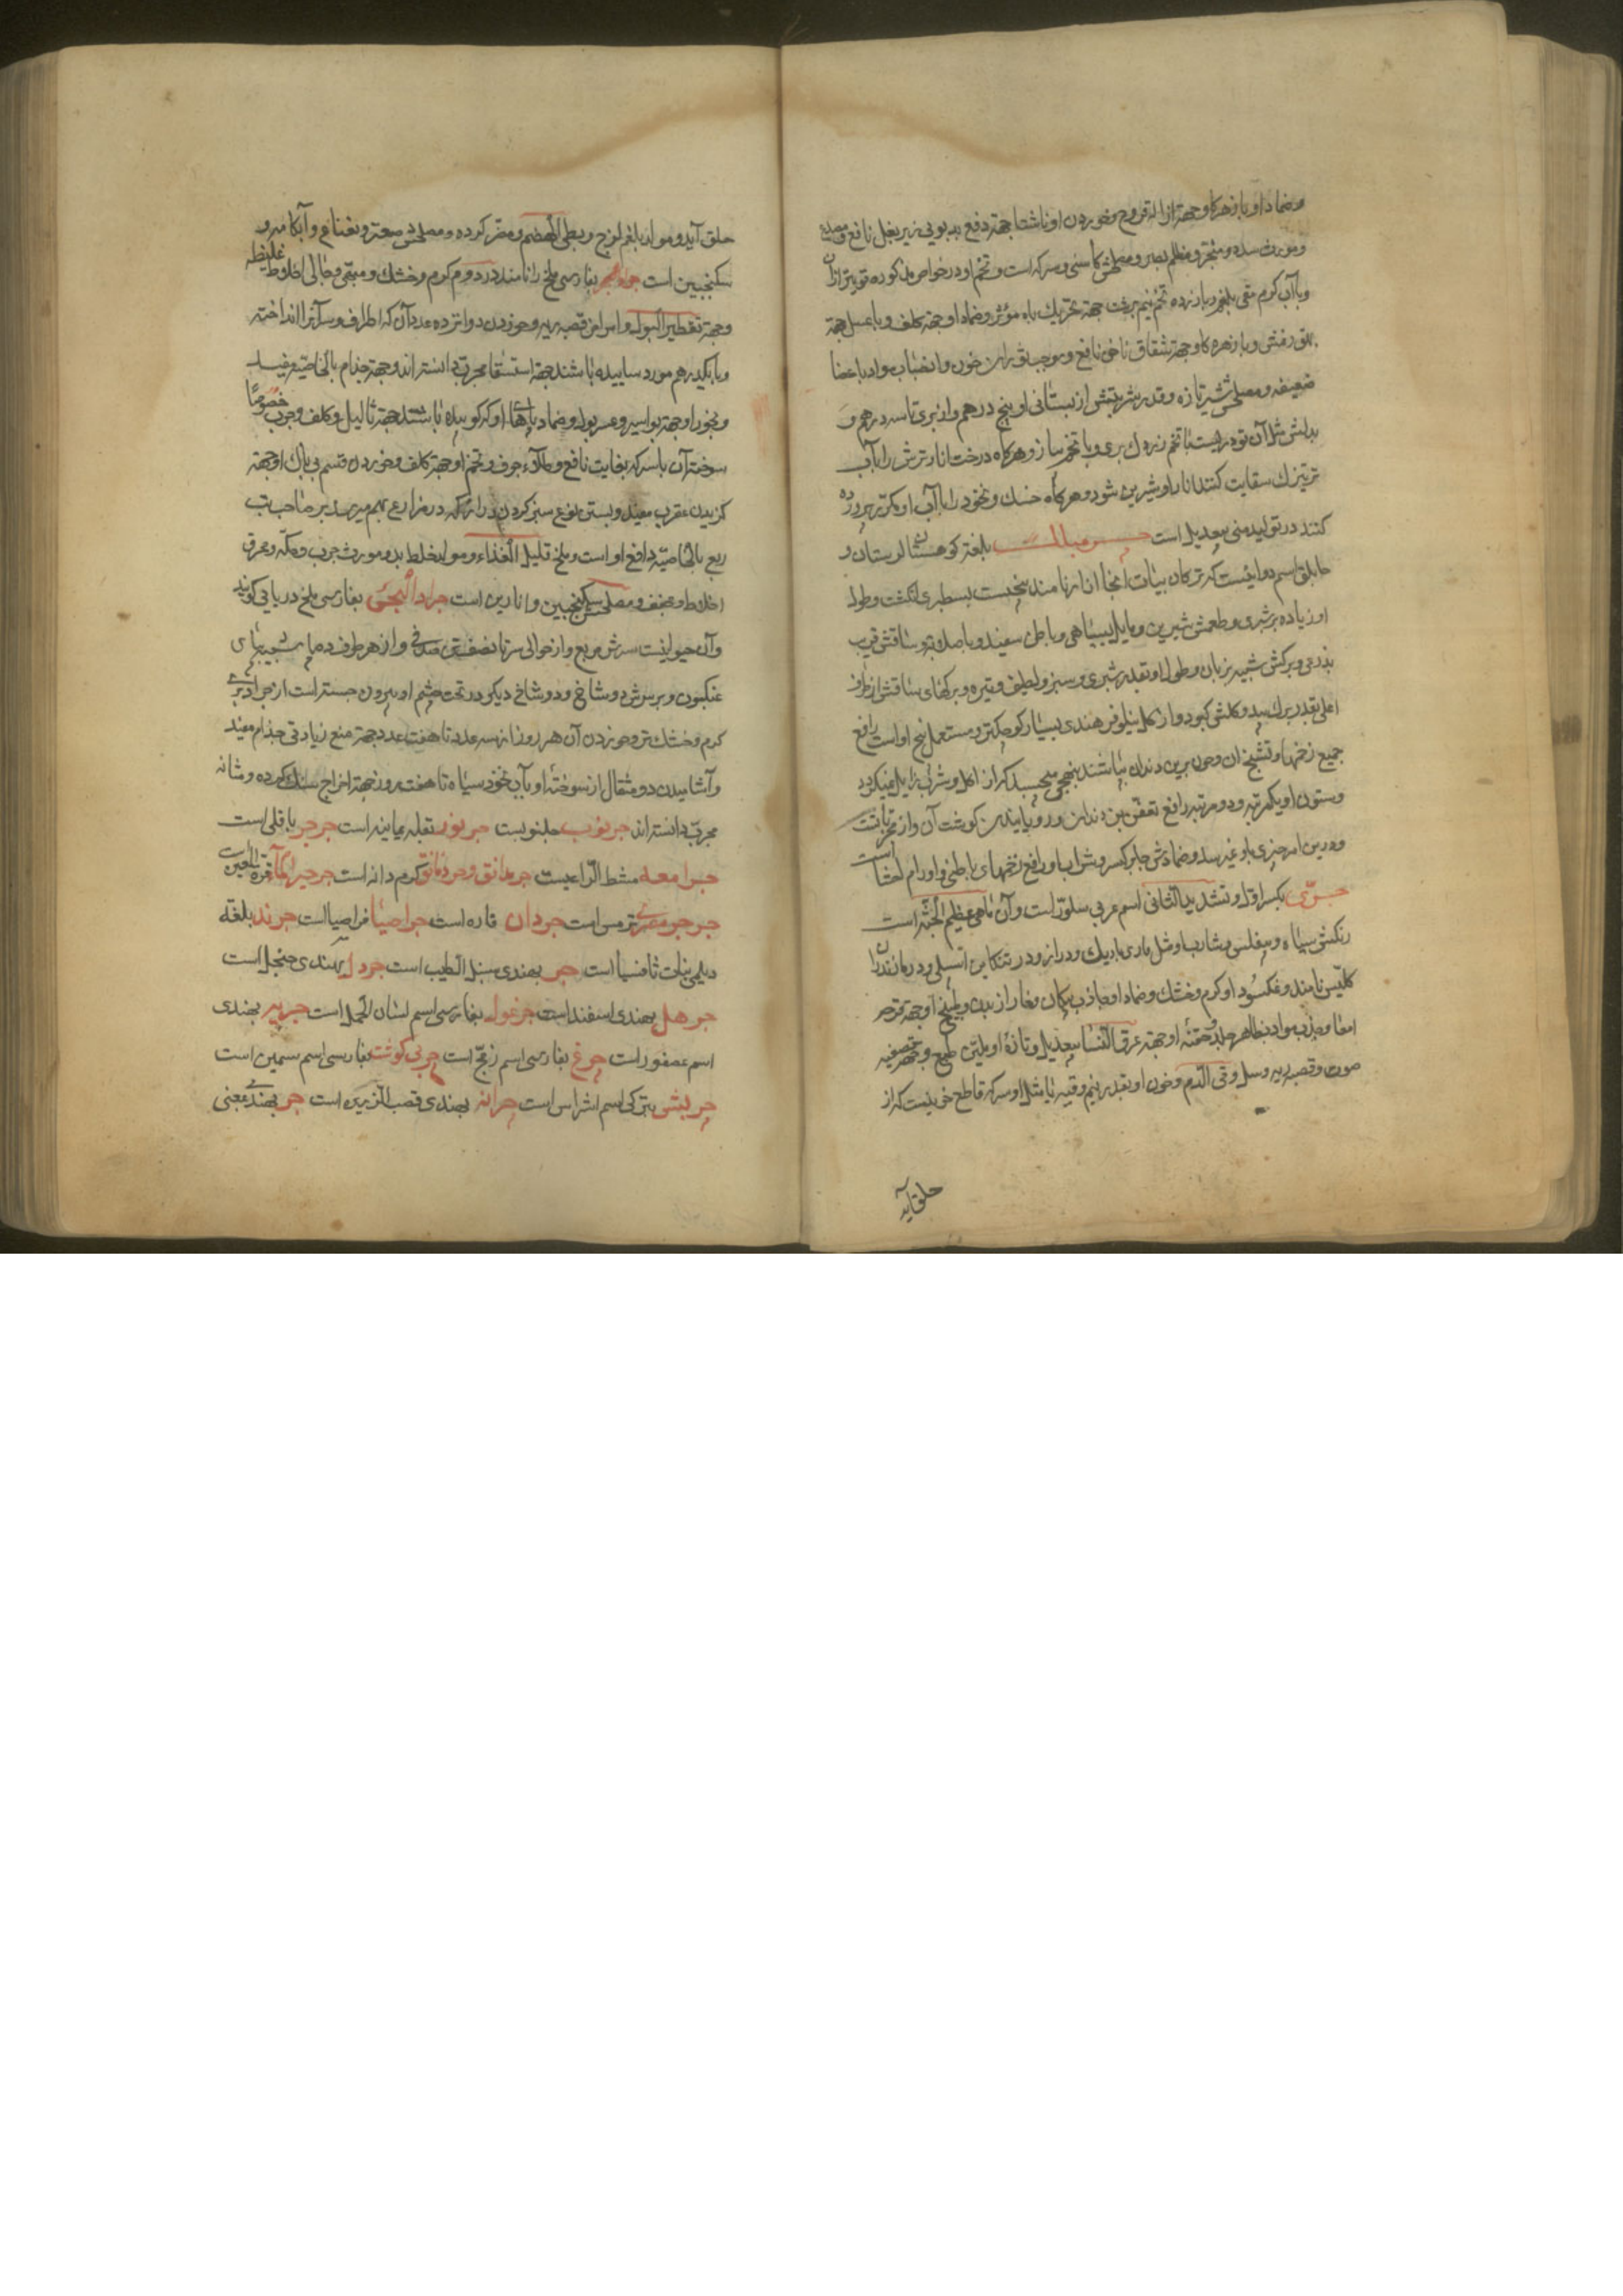 وضماد او با زهره کاو جهة ازاله قروح وخوردن او ناشتا جهة دفع بدبویی زیر بغل نافع ومصدع
ومورث سدد ومبخر ومظلم بصر ومصلحش کاسنی وسرکه است وتخم او در خواص مذکوره قویتر از آن
وبا آب کرم مقی بلغم وبا زرده تخم نیم برشت جهة تحریک باه مؤثر وضماد او جهة کلف وبا عسل جهة
بهق وبا زهره کاو جهة شقاق ناخن نافع وموجب ادرار خون وانصباب مواد باعضا
ضعیفه ومصلحش شیر تازه وقدر شربتش از بستانی او پنج درهم واز بری تا سه درهم و
بدلش مثل آن تودریست با تخم زردک بری وبا تخم پیاز وهرکاه درخت انار ترش را بآب
ترتیزک سقایت کنند انار او شیرین شود وهرکاه خسک ونخود را با آب او مکرر پرورده
کنند در تولید منی بیعدیل است بلغة کوهستان لرستان و
اسم دوائیست که ترکان بیات آنجا نامند بیخیست بسطبری انکشت وطول
او زیاده بر شبری وطعمش شیرین ومایل بسیاهی وباطن سفید وباصلابة وساقش قریب
بذرعی وبرکش شبیه بزبان وطول او بقدر شبری وسبز ولطیف وتیره وبرکهای ساقش از طرف
اعلی بقدر برک بید وکلش کبود واز کل نیلوفر هندی بسیار کوچکتر ومستعمل بیخ او است رافع
جمیع زخمها وتشنج آن وچون برین دندان بپاشند بنحوی میچسبد که از اکل وشرب زایل نمیکردد
وستون او یکمرتبه ودو مرتبه رافع تعفن بن دندان ورویانیدن کوشت آن واز مجرباتست
ودرین امر چیزی باو نمیرسد وضمادش جابر کسر وشراب او رافع زخمهای باطنی واورام احشا است
جرّی بکسر اول وتشدید الثانی اسم عربی سلور است وآن ماهی عظیم الجثه است
رنکش سیاه وبیفلس وشارب او مثل ماری باریک ودراز ودر تنکابن اسبلی ودر مازندران
کلیس نامند ونمکسود او کرم وخشک وضماد او جاذب پیکان وخار از بدن وطبیخ او جهة قرحه
امعا وجذب مواد بظاهر جلد وحقنه او جهة عرق النسا بیعدیل وتازه او ملین طبع وجهة تصفیه
صوت وقصبه ریه وسل وقی الدم وخون او بقدر نیم وقیه با مثل او سرکه قاطع خونیست که از
حلق آید
حلق آید ومولد بلغم لزج وبطی الهضم ومضر کرده ومصلحش صعتر ونعناع وآبکامه و
سکنجبین است جراد بفارسی ملخ را نامند در دوم کرم وخشک ومنقی وجالی اخلاط غلیظه
وجهة تقطیر البول وامراض قصبه ریه وخوردن دوانزده عدد آن که اطراف وسر آنرا انداخته
وبا یکدرهم مورد ساییده باشند جهة استسقا مجرب دانسته اند وجهة جذام بالخاصیه مفید
وبخور او جهة بواسیر وعسر بول وضماد پاهای او که کوبیده باشند جهة ثالیل وکلف وجرب خصوصا
سوخته آن با سرکه بغایت نافع وطلاء جوف وتخم او جهة کلف وخوردن قسم بی بال او جهة
کزیدن عقرب مفید وبستن نوع سبز کردن دراز که در مزارع بهم میرسد بر صاحب تب
ربع بالخاصیه دافع او است وملخ قلیل الغذاء ومولد خلط بد ومورث جرب وحکه ومحرق
اخلاط ومجفف ومصلحش سکنجبین وانارین است جراد البحری بفارسی ملخ دریایی کویند
وآن حیوانیست سرش مربع واز حوالی سر تا نصف تن صدفی واز هر طرف ده پای شبیه بپای
عنکبوت وبر سرش دو شاخ ودو شاخ دیکر در تحت چشم او بیرون جسته است از جراد بری
کرم وخشک تر وخوردن آن هر روز از سه عدد تا هفت عدد جهة منع زیادتی جذام مفید
وآشامیدن دو مثقال از سوخته او بآب نخود سیاه تا هفت روز جهة اخراج سنک کرده ومثانه
مجرب دانسته اند جرنوب حلبنوبست جرنوز بقله یمانیه است جرجر باقلی است
جرامعه مشط الراعیست جرمانق وجرذمانق کرم دانه است جرجیر الماء قرة العین است
جرجر مصری ترمس است جردان فاره است جراصیا قراصیا است جرند بلغة
دیلمی نبات ثافسیا است جر بهندی سنبل الطیب است جردل بهندی حنجل است
جرهل بهندی اسفند است جرغول بفارسی اسم لسان الحمل است جرببر بهندی
اسم عصفور است چرغ بفارسی اسم زمج است چربی کوشت بفارسی اسم سمین است
چریش بترکی اسم اشراس است چرانه بهندی قصب الذریره است چر بهندی بمعنی